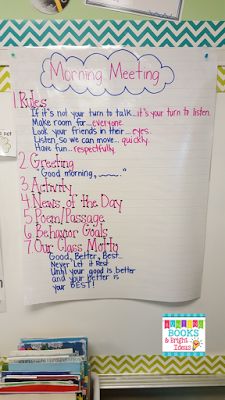 Morning Meeting
1. Rules
If it's not your turn to talk...it's your turn to listen.
Make room for...everyone.
Look your friends in their...eyes.
Listen so we can move...quickly.
Have fun...respectfully.
2. Greeting
"Good morning, ______."
3. Activity
4. News of the Day
5. Poem/Passage
6. Behavior Goals
7. Our Class Motto
Good, Better, Best...
Never Let it Rest
Until your good is better
and your better is
your BEST!
BOOKS
& Bright
Ideas